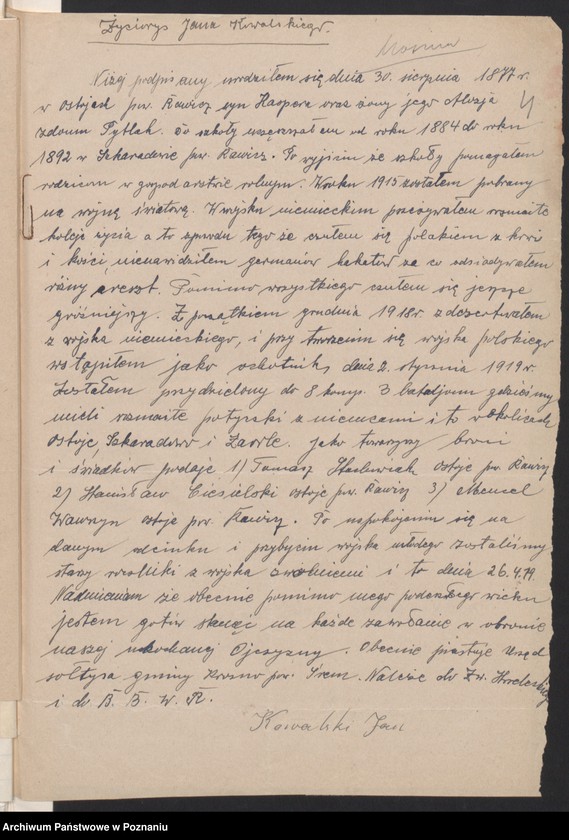 Życiorys Jana Kowalskiego.
Niżej podpisany urodziłem się dnia 30. sierpnia 1877 r.
w Ostojach pow. Rawicz syn Kaspera oraz żony jego
zdomu Pytlak. Do szkoły uczęszczałem od roku 1884 do roku
1892 w Szkaradowie pow. Rawicz. Po wyjściu ze szkoły pomagałem
rodzicom w gospodarstwie rolnym. W roku 1915 zostałem pobrany
na wojnę światową. W wojsku niemieckim przeżywałem rozmaite
koleje życia a to zpowodu tego że czułem się polakiem z krwi
i kości, nienawidziłem germanów za co odsiadywałem
różny areszt. Pomimo wszystkiego czułem się jeszcze
groźniejszy. Z początkiem grudnia 1918 r. zdezertowałem
z wojska niemieckiego, i przy tworzeniu się wojska polskiego
wstąpiłem jako ochotnik, dnia 2. stycznia 1919 r.
Zostałem przydzielony do 8 komp. 3 bataljonu gdzieśmy
mieli rozmaite potyczki z niemcami i to w okolicach
Ostoje, Szkaradowo i Zaorle. Jako towarzyszy broni
i świadków podaje 1) Tomasz Ostoje pw. Rawicz
2) Stanisław Ciesielski Ostoje pow. Rawicz 3)
Wawrzyn Ostoje pow. Rawicz. Po uspokojeniu się na
danym odcinku i przybyciu wojska młodego zostaliśmy
stary roczniki z wojska zwolnieni i to dnia 26.4.19.
Nadmieniam że obecnie pomimo mego podeszłego wieku
jestem gotów stanąć na każde zawołanie w obronie
naszej ukochanej Ojczyzny. Obecnie piastuje Urząd
sołtysa gminy pow. Śrem. Należe do Zw.
i do B. B. W. R.
Kowalski Jan
Archiwum Państwowe w Poznaniu